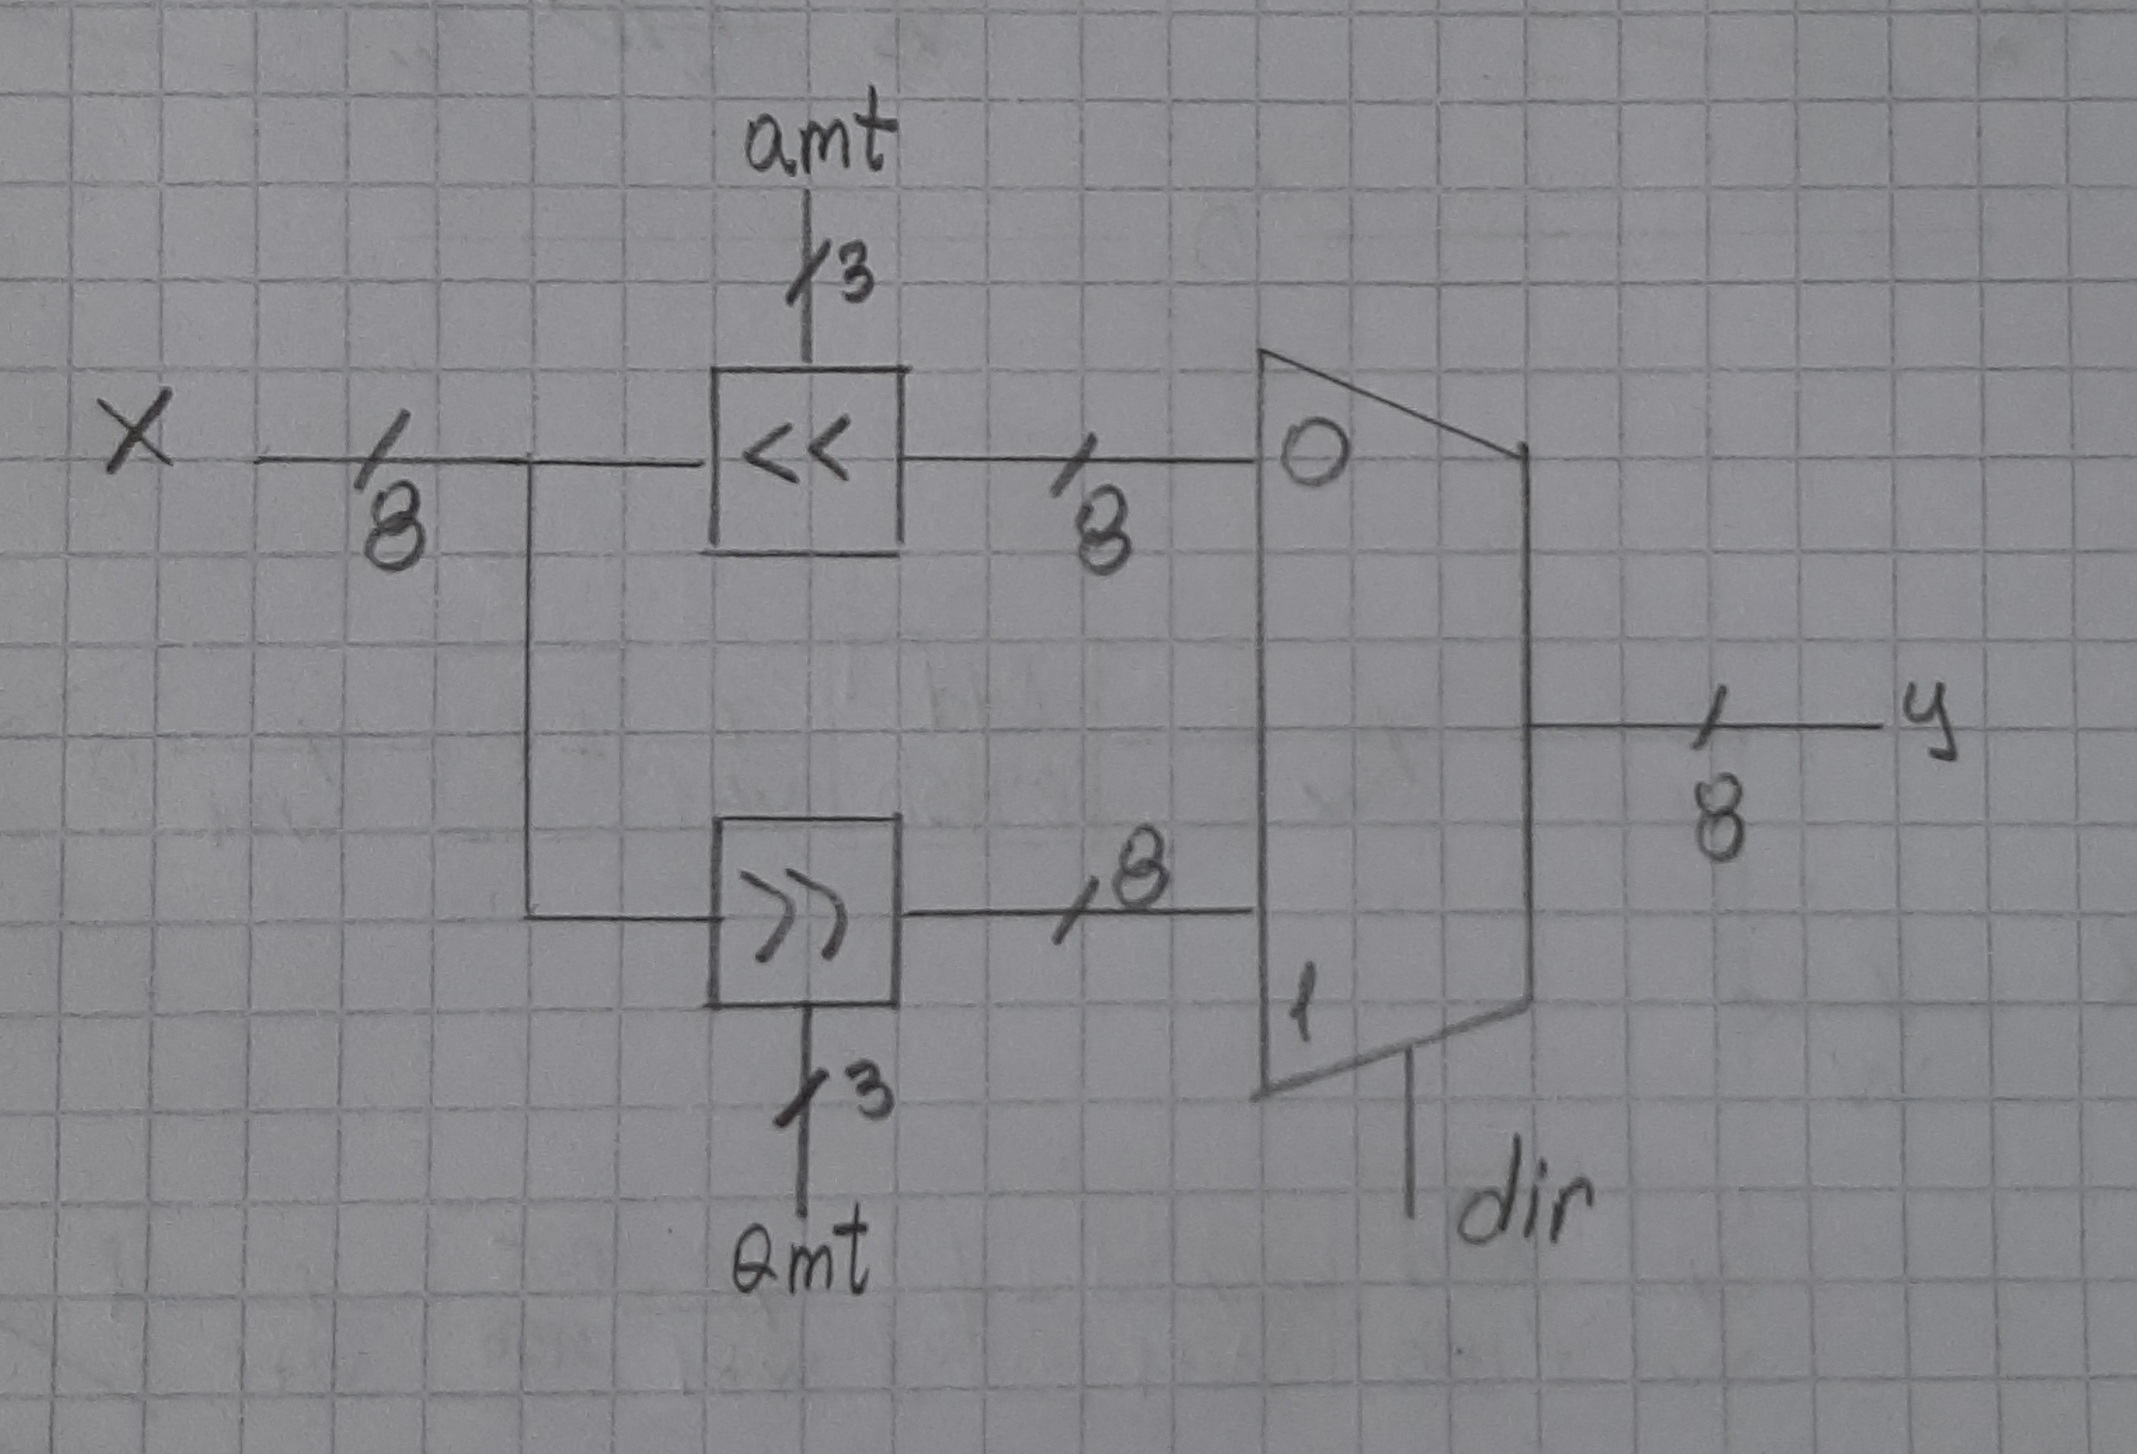 amt
3
X
8
<<
8
0
y
8
>>
8
1
3
amt
dir